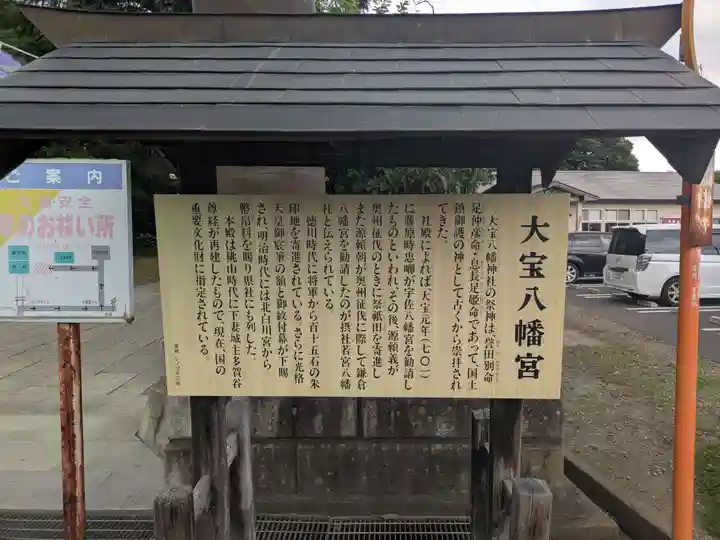 大宝八幡宮
大宝八幡神社の祭神は、誉田別命・
足仲彦命・息長足姫命であって、国土
鎮御護の神として古くから崇拝され
てきた。
社殿によれば、大宝元年(七〇一)
に藤原時忠卿が宇佐八幡宮を勧請し
たものといわれ、その後、源頼義が
奥州征伐のときに祭祇田を寄進し
また源頼朝が奥州征伐に際して鎌倉
八幡宮を勧請したのが摂社若宮八幡
社と伝えられている。
徳川時代に将軍から百十五石の朱
印地を寄進されている。さらに光格
天皇御宸筆の額と御紋付幕が下賜
され、明治時代には北白川宮から
幣帛料を賜り県社にも列した。
本殿は桃山時代に下妻城主多賀谷
尊経が再建したもので、現在、国の
重要文化財に指定されている。
ご案内
安全
のお祓い所